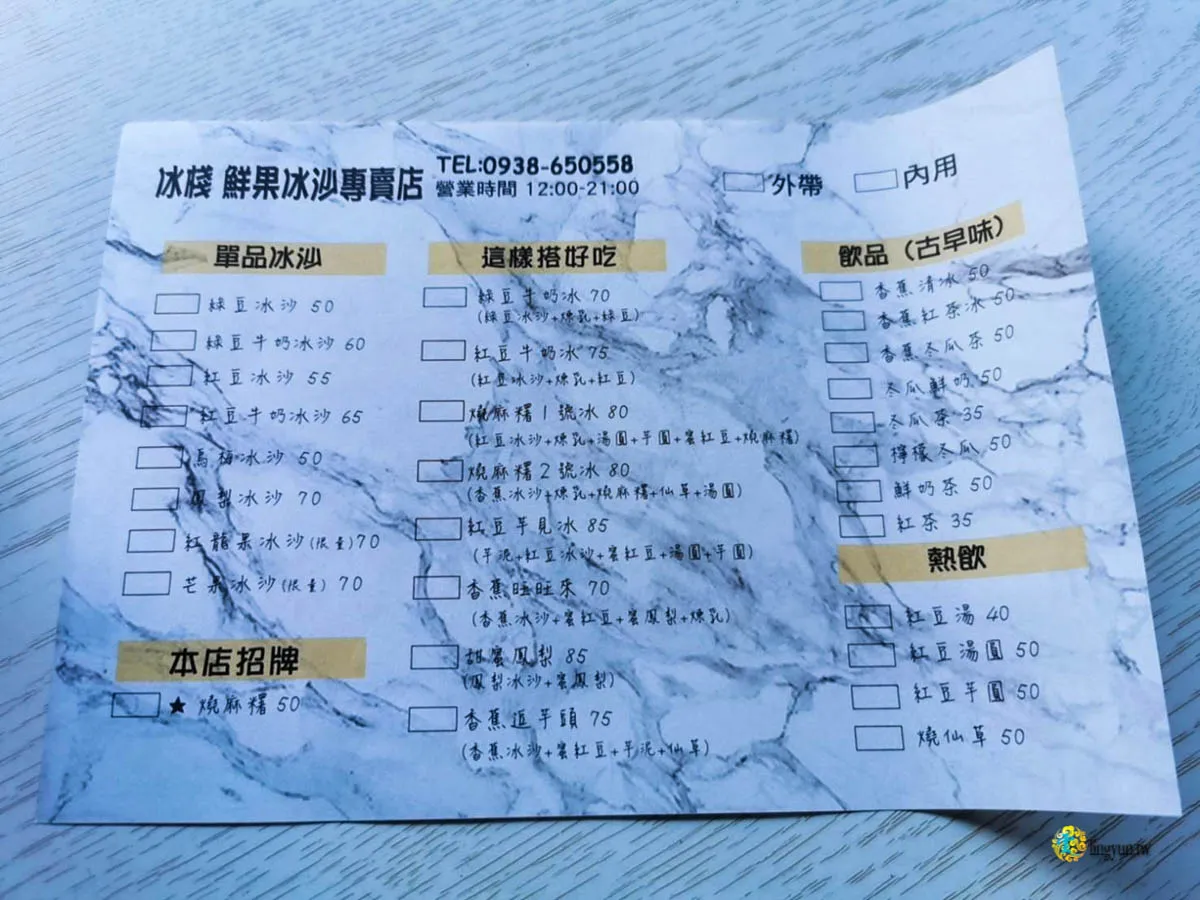 冰棧 鮮果冰沙專賣店
TEL:0938-650558
營業時間 12:00-21:00
外帶
內用
單品冰沙
綠豆冰沙 50
綠豆牛奶冰沙 60
紅豆冰沙 55
紅豆牛奶冰沙 65
烏梅冰沙 50
鳳梨冰沙 70
紅龍果冰沙(限量)70
芒果冰沙(限量) 70
本店招牌
★ 燒麻糬 50
這樣搭好吃
綠豆牛奶冰 70
(綠豆冰沙+煉乳+綠豆)
紅豆牛奶冰 75
(紅豆冰沙+煉乳+紅豆)
燒麻糬1號冰 80
(紅豆冰沙+煉乳+湯圓+芋圓+蜜紅豆+燒麻糬)
燒麻糬2號冰 80
(香蕉冰沙+煉乳+燒麻糬+仙草+湯圓)
紅豆芋見冰 85
(芋泥+紅豆冰沙+蜜紅豆+湯圓+芋圓)
香蕉旺旺來 70
(香蕉冰沙+蜜紅豆+蜜鳳梨+煉乳)
甜蜜鳳梨 85
(鳳梨冰沙+蜜鳳梨)
香蕉逗芋頭 75
(香蕉冰沙+蜜紅豆+芋泥+仙草)
飲品（古早味）
香蕉清冰 50
香蕉紅茶冰 50
香蕉冬瓜茶 50
冬瓜鮮奶 50
冬瓜茶 35
檸檬冬瓜 50
鮮奶茶 50
紅茶 35
熱飲
紅豆湯 40
紅豆湯圓 50
紅豆芋圓 50
燒仙草 50
lingyun.tw